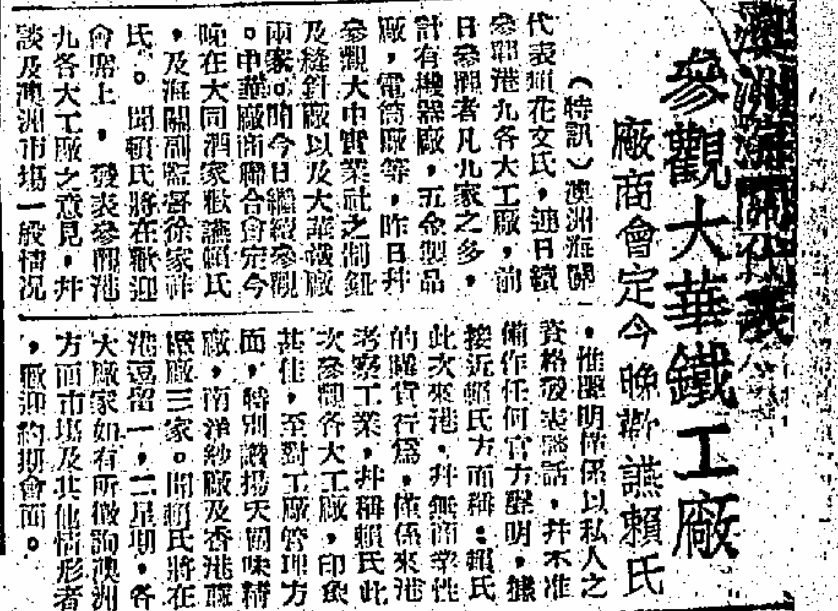 澳洲海關代表
參觀大華鐵工廠
廠商會定今晚歡讌賴氏
（特訊）澳洲海關
代表賴花文氏，連日續
參觀港九各大工廠，前
日參觀者凡九家之多，
計有機器廠，五金製品
廠，電筒廠等，昨日幷
參觀大中實業社之制鈕
及縫針廠以及大華鐵廠
兩家。聞今日繼續參觀
。中華廠商聯合會定今
晚在大同酒家歡讌賴氏
，及海關副監督徐家祥
氏。聞賴氏將在歡迎
會席上，發表參觀港
九各大工廠之意見，幷
談及澳洲市場一般情况
，惟聲明僅係以私人之
資格發表談話，幷不准
備作任何官方聲明，據
接近賴氏方面稱：賴氏
此次來港，幷無商業性
的購貨行爲，僅係來港
考察工業，幷稱賴氏此
次參觀各大工廠，印象
甚佳，至對工廠管理方
面，特別讚揚天關味精
廠，南洋紗廠及香港
廠三家。聞賴氏將在
港逗留一，二星期，各
大廠家如有所徵詢澳洲
方面市場及其他情形者
，歡迎約期會面。